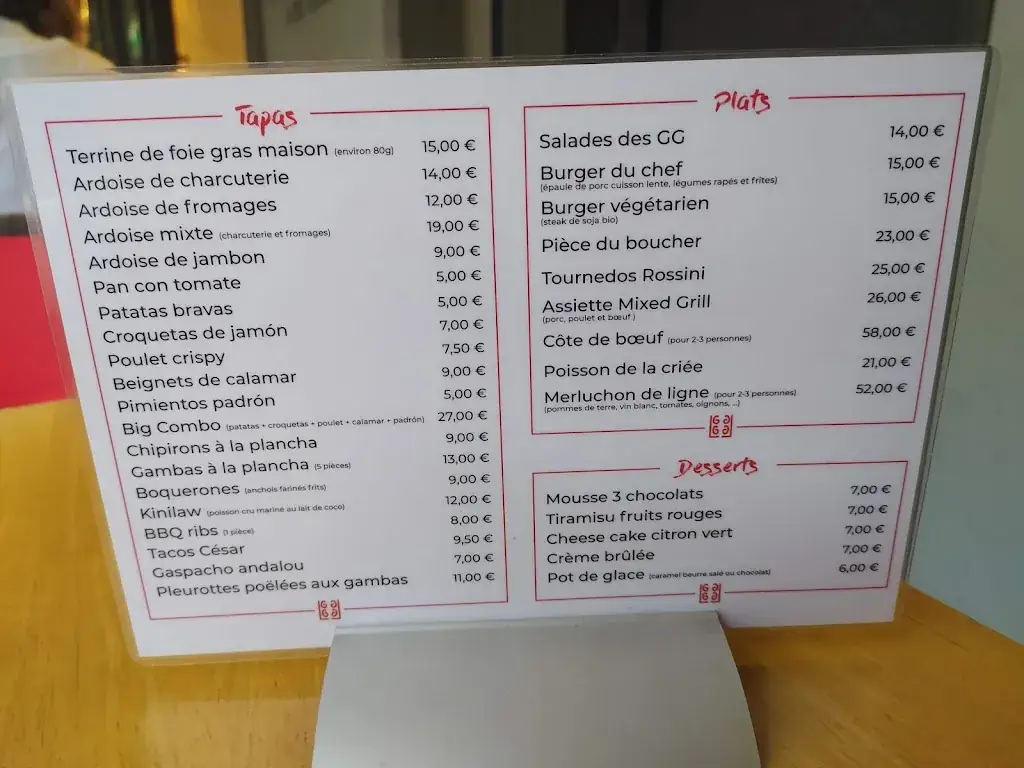 Tapas
Terrine de foie gras maison (environ 80g) 15,00 €
Ardoise de charcuterie 14,00 €
Ardoise de fromages 12,00 €
Ardoise mixte (charcuterie et fromages) 19,00 €
Ardoise de jambon 9,00 €
Pan con tomate 5,00 €
Patatas bravas 5,00 €
Croquetas de jamón 7,00 €
Poulet crispy 7,50 €
Beignets de calamar 9,00 €
Pimientos padrón 5,00 €
Big Combo (patatas + croquetas + poulet + calamar + padrón) 27,00 €
Chipirons à la plancha 9,00 €
Gambas à la plancha (5 pièces) 13,00 €
Boquerones (anchois farinés frits) 9,00 €
Kinilaw (poisson cru mariné au lait de coco) 12,00 €
BBQ ribs (1 pièce) 8,00 €
Tacos César 9,50 €
Gaspacho andalou 7,00 €
Pleurottes poëlées aux gambas 11,00 €
Plats
Salades des GG 14,00 €
Burger du chef 15,00 €
(épaule de porc cuisson lente, légumes rapés et frites)
Burger végétarien 15,00 €
(steak de soja bio)
Pièce du boucher 23,00 €
Tournedos Rossini 25,00 €
Assiette Mixed Grill 26,00 €
(porc, poulet et bœuf )
Côte de bœuf (pour 2-3 personnes) 58,00 €
Poisson de la criée 21,00 €
Merluchon de ligne (pour 2-3 personnes) 52,00 €
(pommes de terre, vin blanc, tomates, oignons, ...)
Desserts
Mousse 3 chocolats 7,00 €
Tiramisu fruits rouges 7,00 €
Cheese cake citron vert 7,00 €
Crème brûlée 7,00 €
Pot de glace (caramel beurre salé ou chocolat) 6,00 €